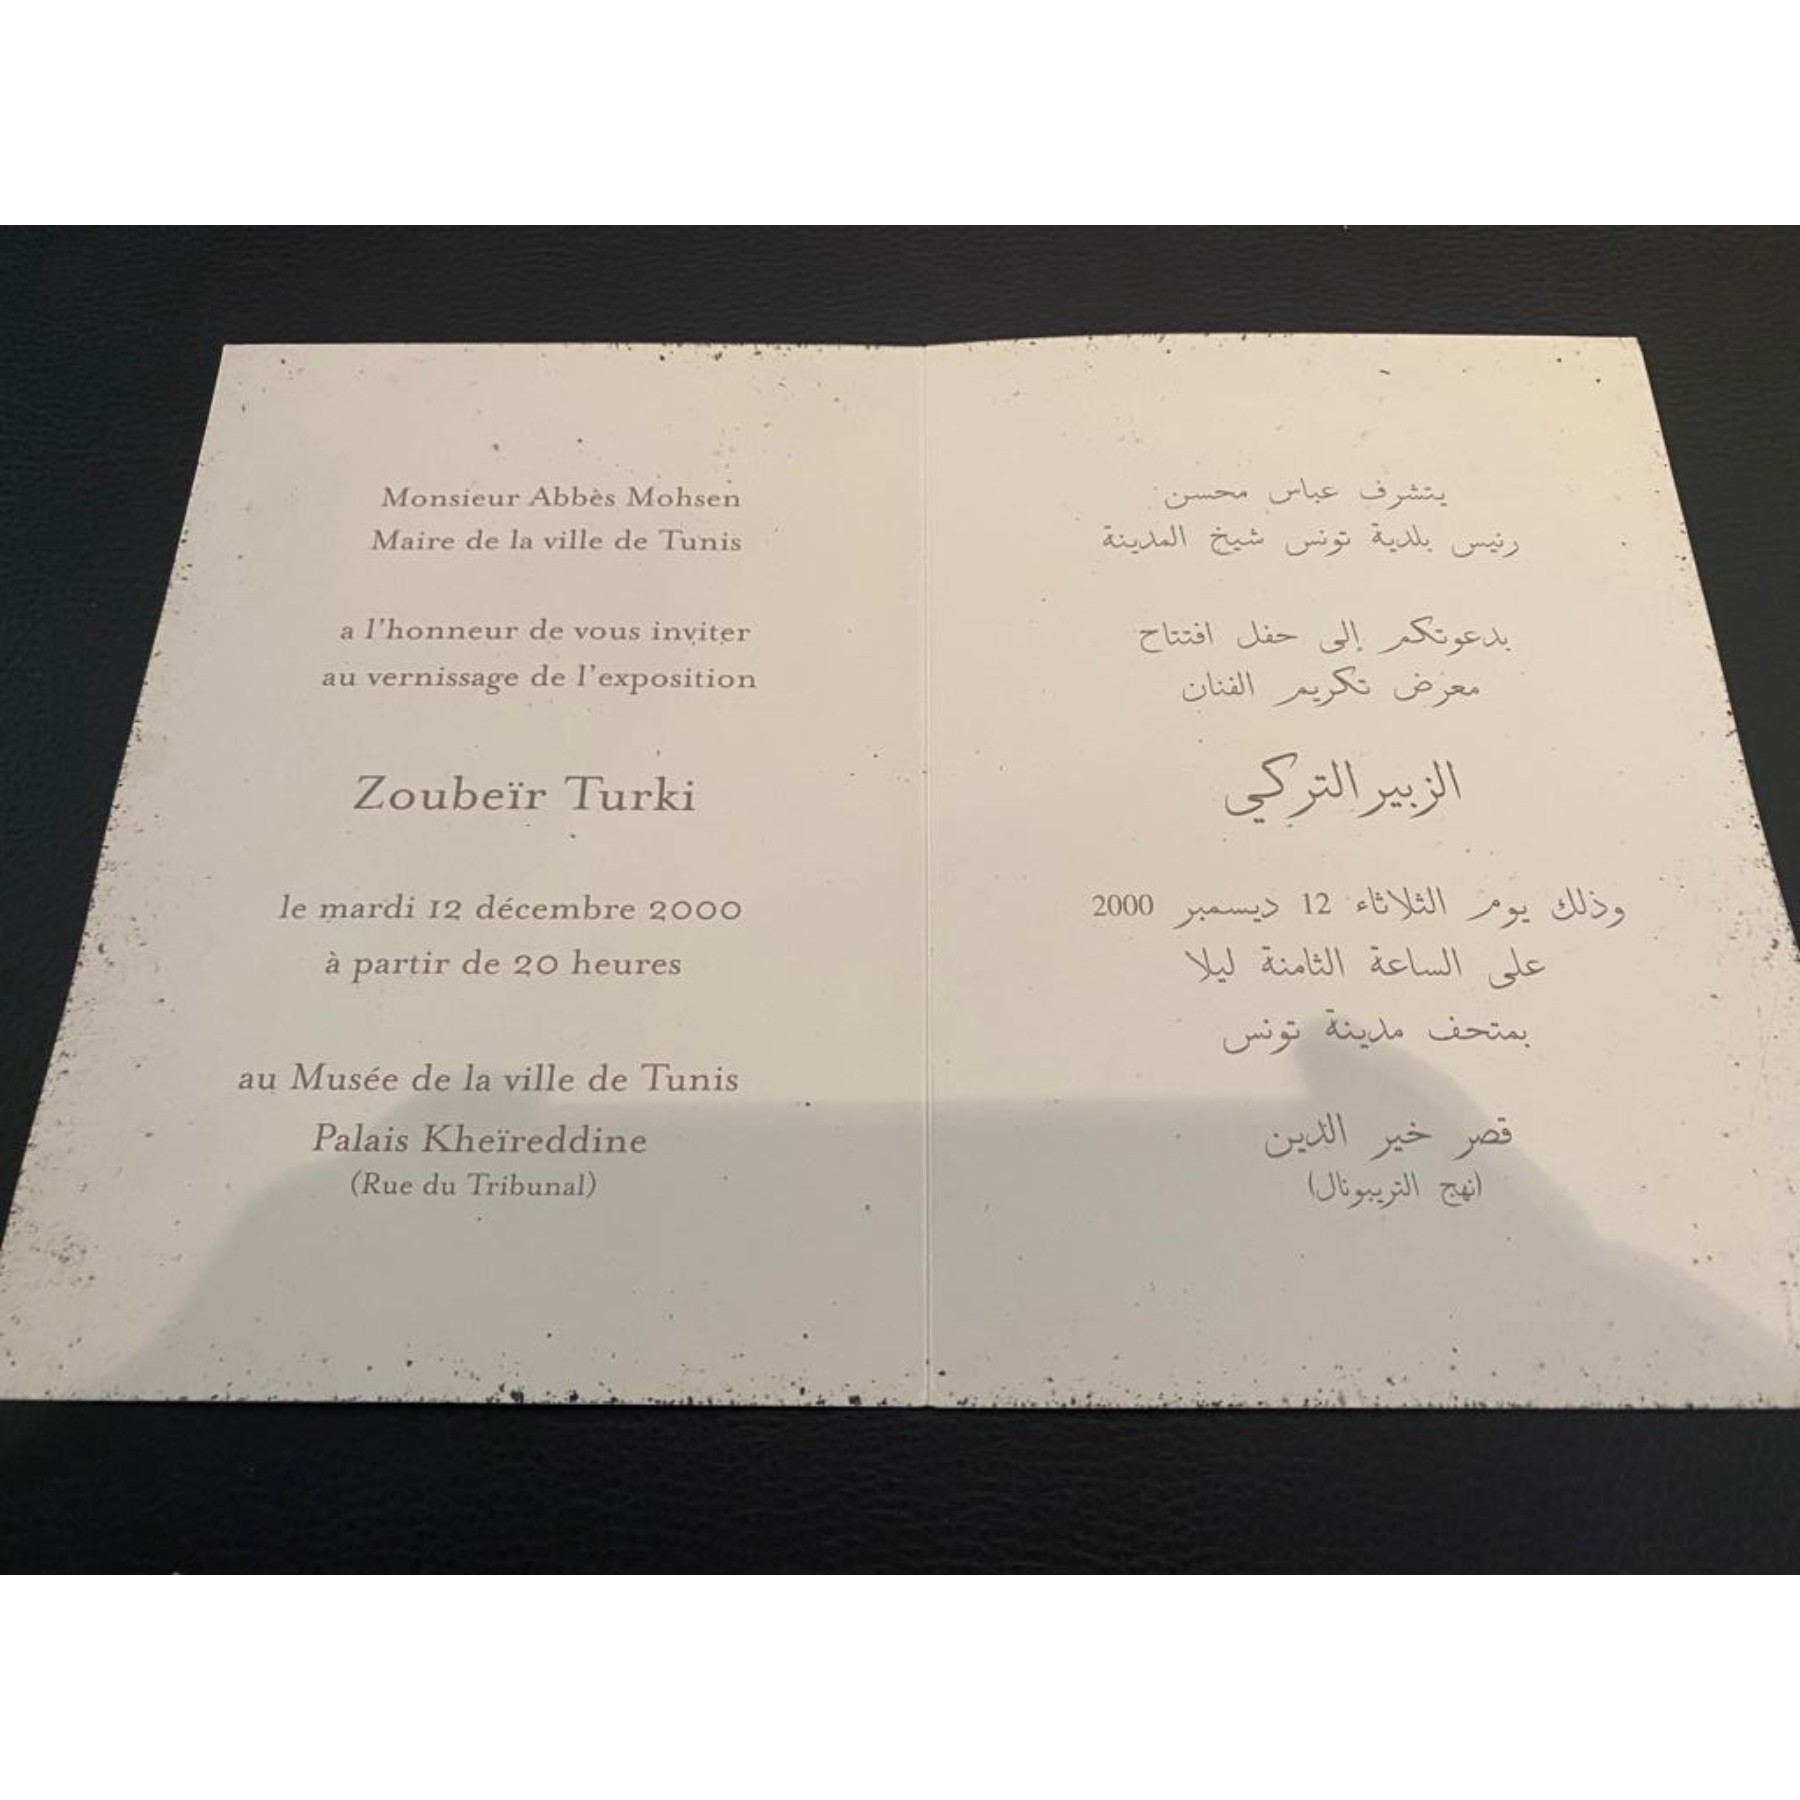 Monsieur Abbès Mohsen
Maire de la ville de Tunis
a l'honneur de vous inviter
au vernissage de l'exposition
Zoubeïr Turki
le mardi 12 décembre 2000
à partir de 20 heures
au Musée de la ville de Tunis
Palais Kheïreddine
(Rue du Tribunal)
يتشرف عباس محسن
رئيس بلدية تونس شيخ المدينة
بدعوتكم إلى حفل افتتاح
معرض تكريم الفنان
الزبير التركي
وذلك يوم الثلاثاء 12 ديسمبر 2000
على الساعة الثامنة ليلا
بمتحف مدينة تونس
قصر خير الدين
(نهج التريبونال)